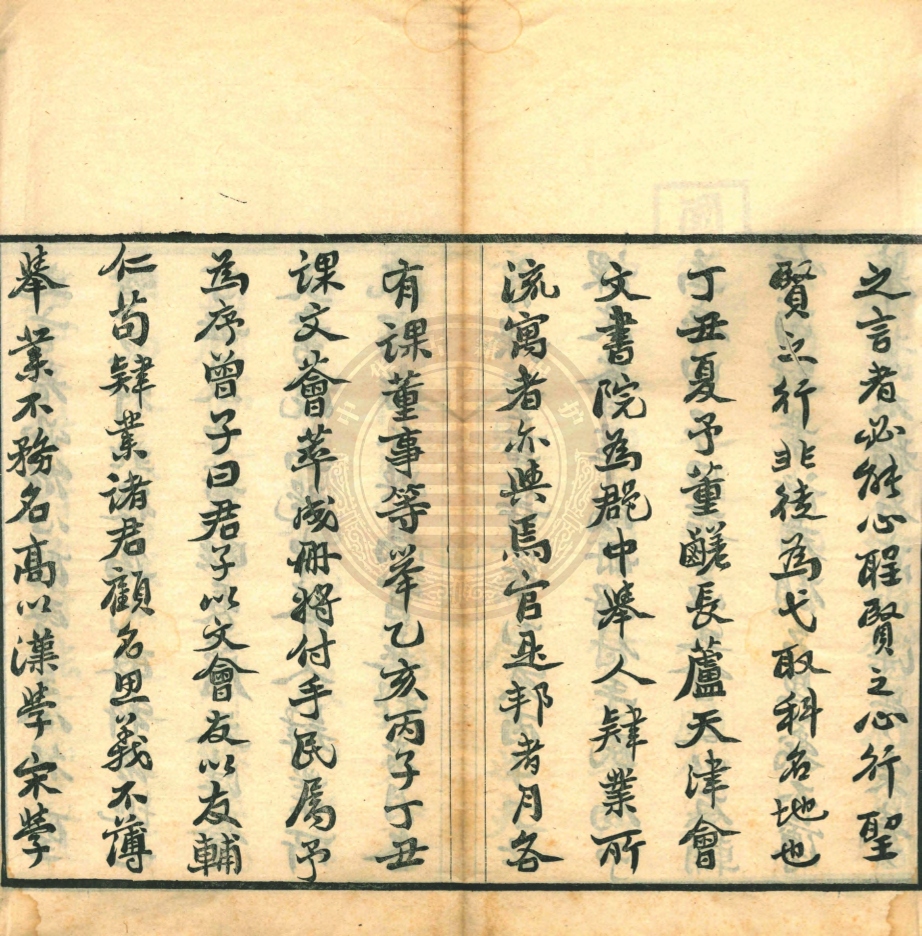 之言者必能心聖賢之心行聖
賢之行非徒為弋取科名地也
丁丑夏予董鹺長蘆天津會
文書院為郡中舉人肄業所
流寓者亦與焉官是邦者月各
有課董事等举乙亥丙子丁丑
課文薈萃成冊將付手民屬予
為序曾子曰君子以文會友以友輔
仁苟肄業諸君顧名思義不薄
舉業不務名高以漢學宋學